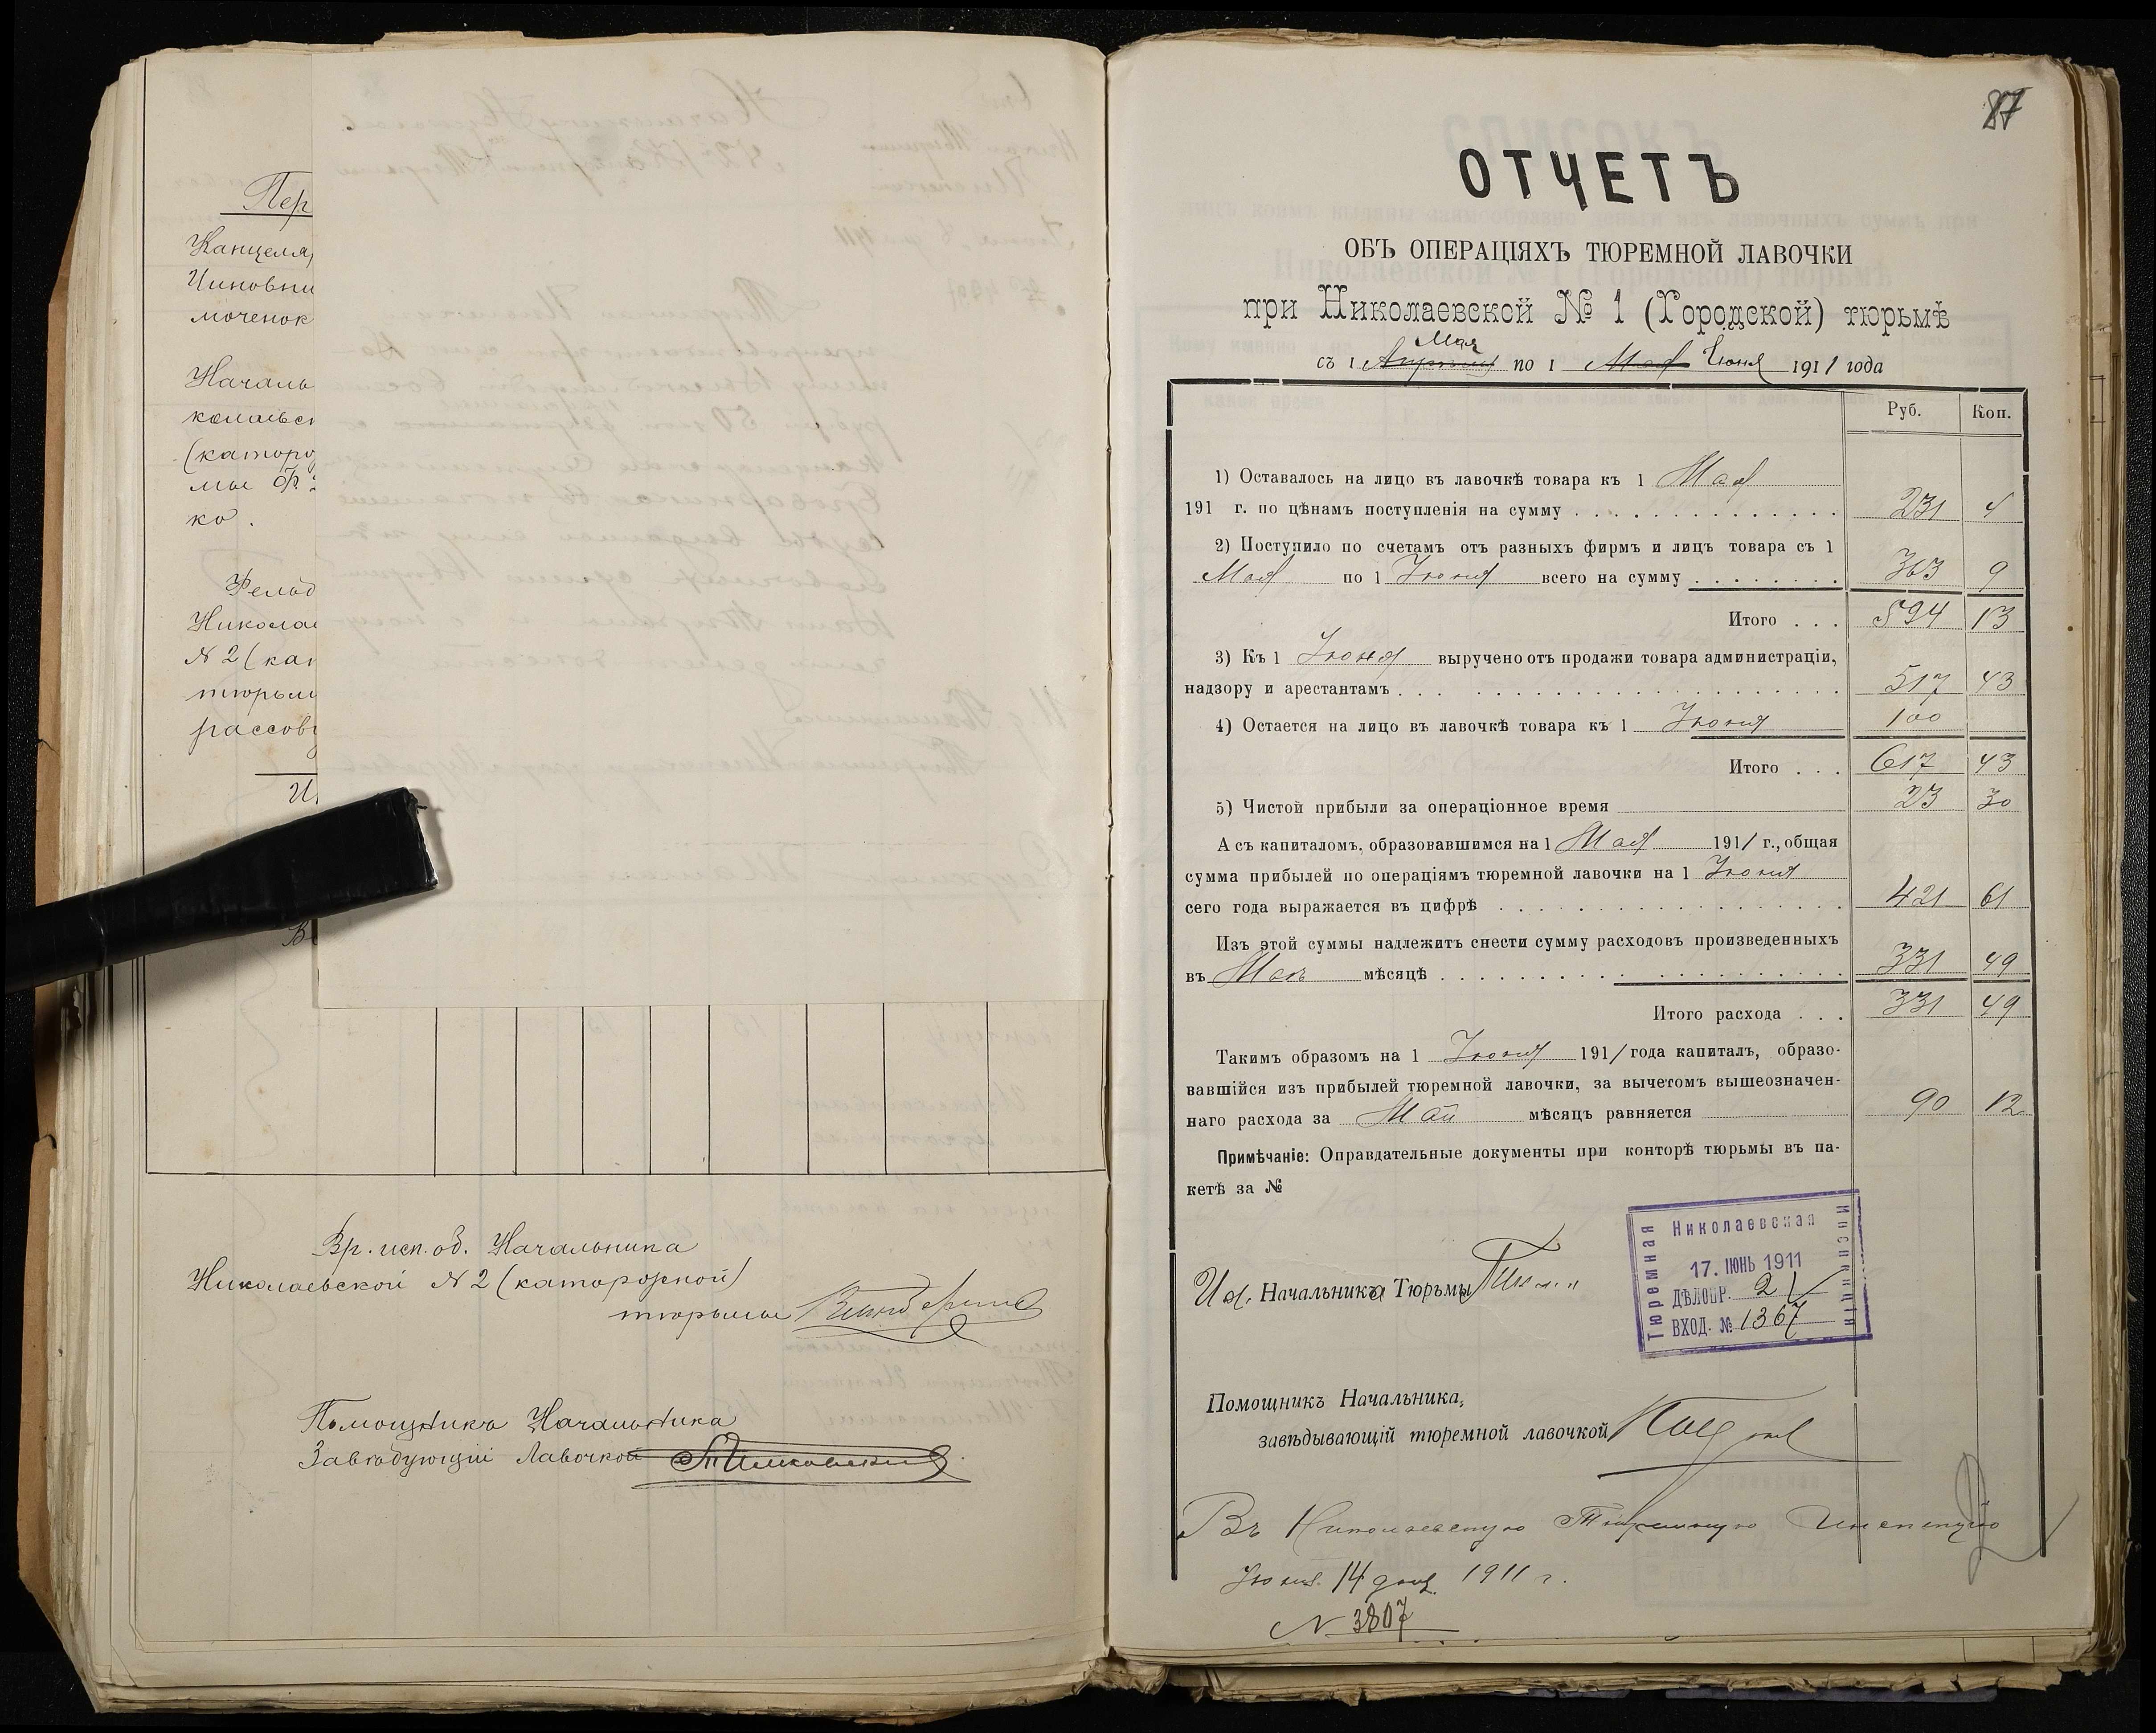 Пер
Канцеля
Чиновни
моченок
Началь
колаевс
(каторо
мы Ф.
ко.
Фельд
Николае
N 2 (ка
тюрьм
рассов
Вр. исп. об. Начальника
Николаевской N 2 (каторожной)
тюрьмы
Помощника Начальника
Завѣдующій Лавочкой
87
ОТЧЕТЪ
ОБЪ ОПЕРАЦІЯХЪ ТЮРЕМНОЙ ЛАВОЧКИ
при Николаевской № 1 (Городской) тюрьмѣ
Мая
съ 1 Апрѣля по 1 Мая Іюня 1911 года
Руб. Коп.
1) Оставалось на лицо въ лавочкѣ товара къ 1 Мая
191 г. по цѣнамъ поступленія на сумму 231 4
2) Поступило по счетамъ отъ разныхъ фирмъ и лицъ товара съ 1
Мая по 1 Іюня всего на сумму 363 9
Итого 594 13
3) Къ 1 Іюня выручено отъ продажи товара администраціи,
надзору и арестантамъ 517 43
4) Остается на лицо въ лавочкѣ товара къ 1 Іюня 100
Итого 617 43
5) Чистой прибыли за операціонное время 23 30
А съ капиталомъ, образовавшимся на 1 Мая 1911 г., общая
сумма прибылей по операціямъ тюремной лавочки на 1 Іюня
сего года выражается въ цифрѣ 421 61
Изъ этой суммы надлежитъ снести сумму расходовъ произведенныхъ
въ Маѣ мѣсяцѣ 331 49
Итого расхода 331 49
Такимъ образомъ на 1 Іюня 1911 года капиталъ, образо-
вавшійся изъ прибылей тюремной лавочки, за вычетомъ вышеозначен-
наго расхода за Май мѣсяцъ равняется 90 12
Примѣчаніе: Оправдательные документы при конторѣ тюрьмы въ па-
кетѣ за №
Николаевская
Тюремная
Инспекція
17. ІЮНЬ 1911
ДѢЛОПР. 2
ВХОД. № 1367
И д. Начальника Тюрьмы
Помощникъ Начальника,
завѣдывающій тюремной лавочкой
Въ Николаевскую Тюремную Инспекцію
Іюня 14 дня 1911 г.
N 3807